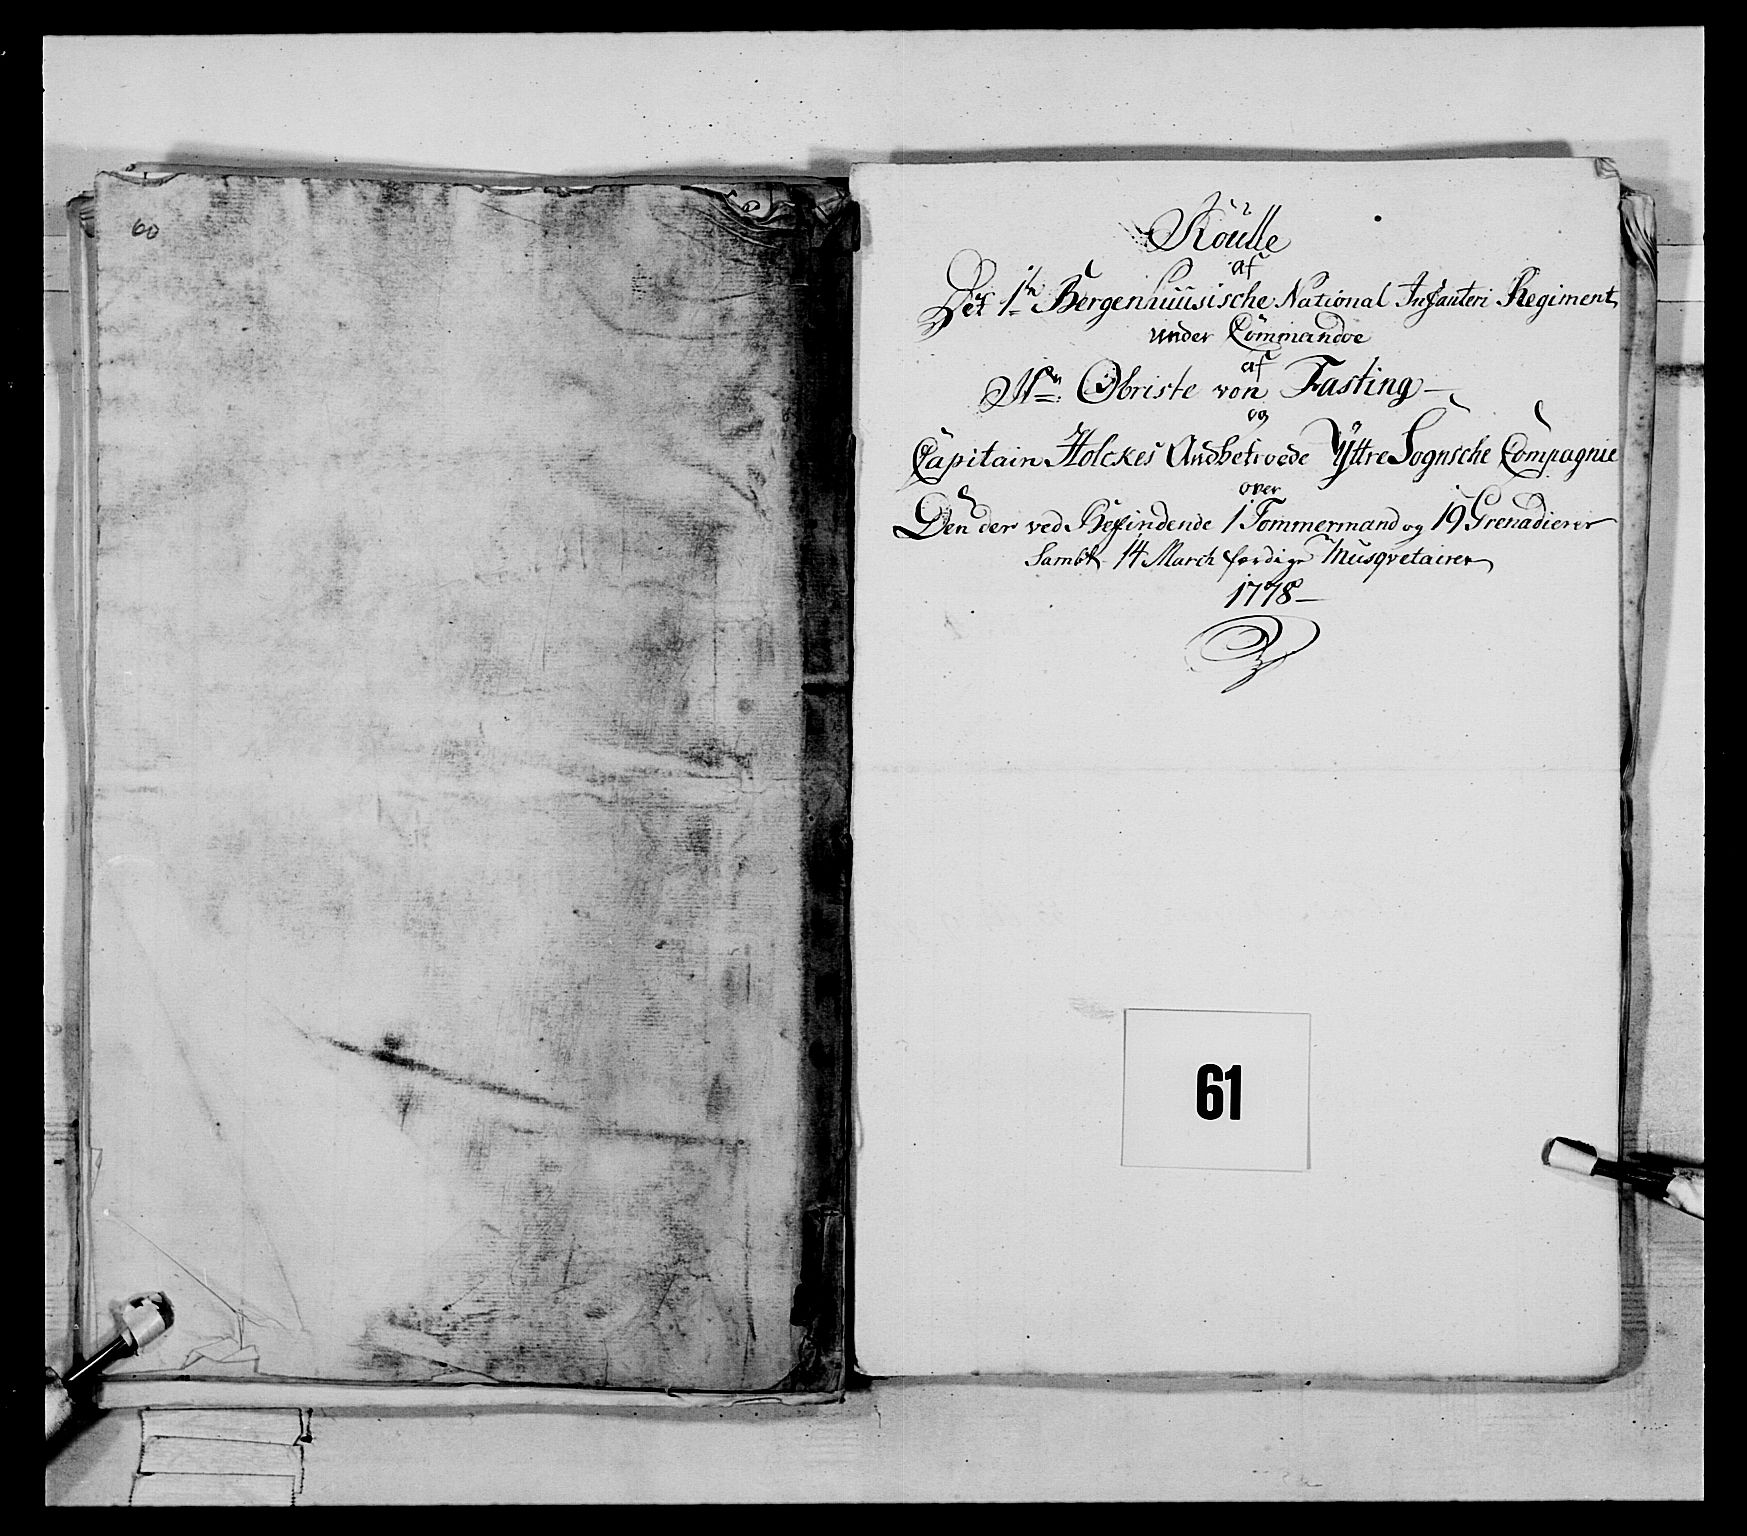 60
Roulle
af
Det 1te Bergenhuusische National Infanteri Regiment
under Commandoe
af
Hr. Obriste von Fasting
og
Capitain Holckes Andbetroede Yttre Sognsche Compagnie
over
Den der ved Befindende 1 Tommermand og 19 Grenadierer
Sambt 14 March færdige Musqvetairer
1778
61